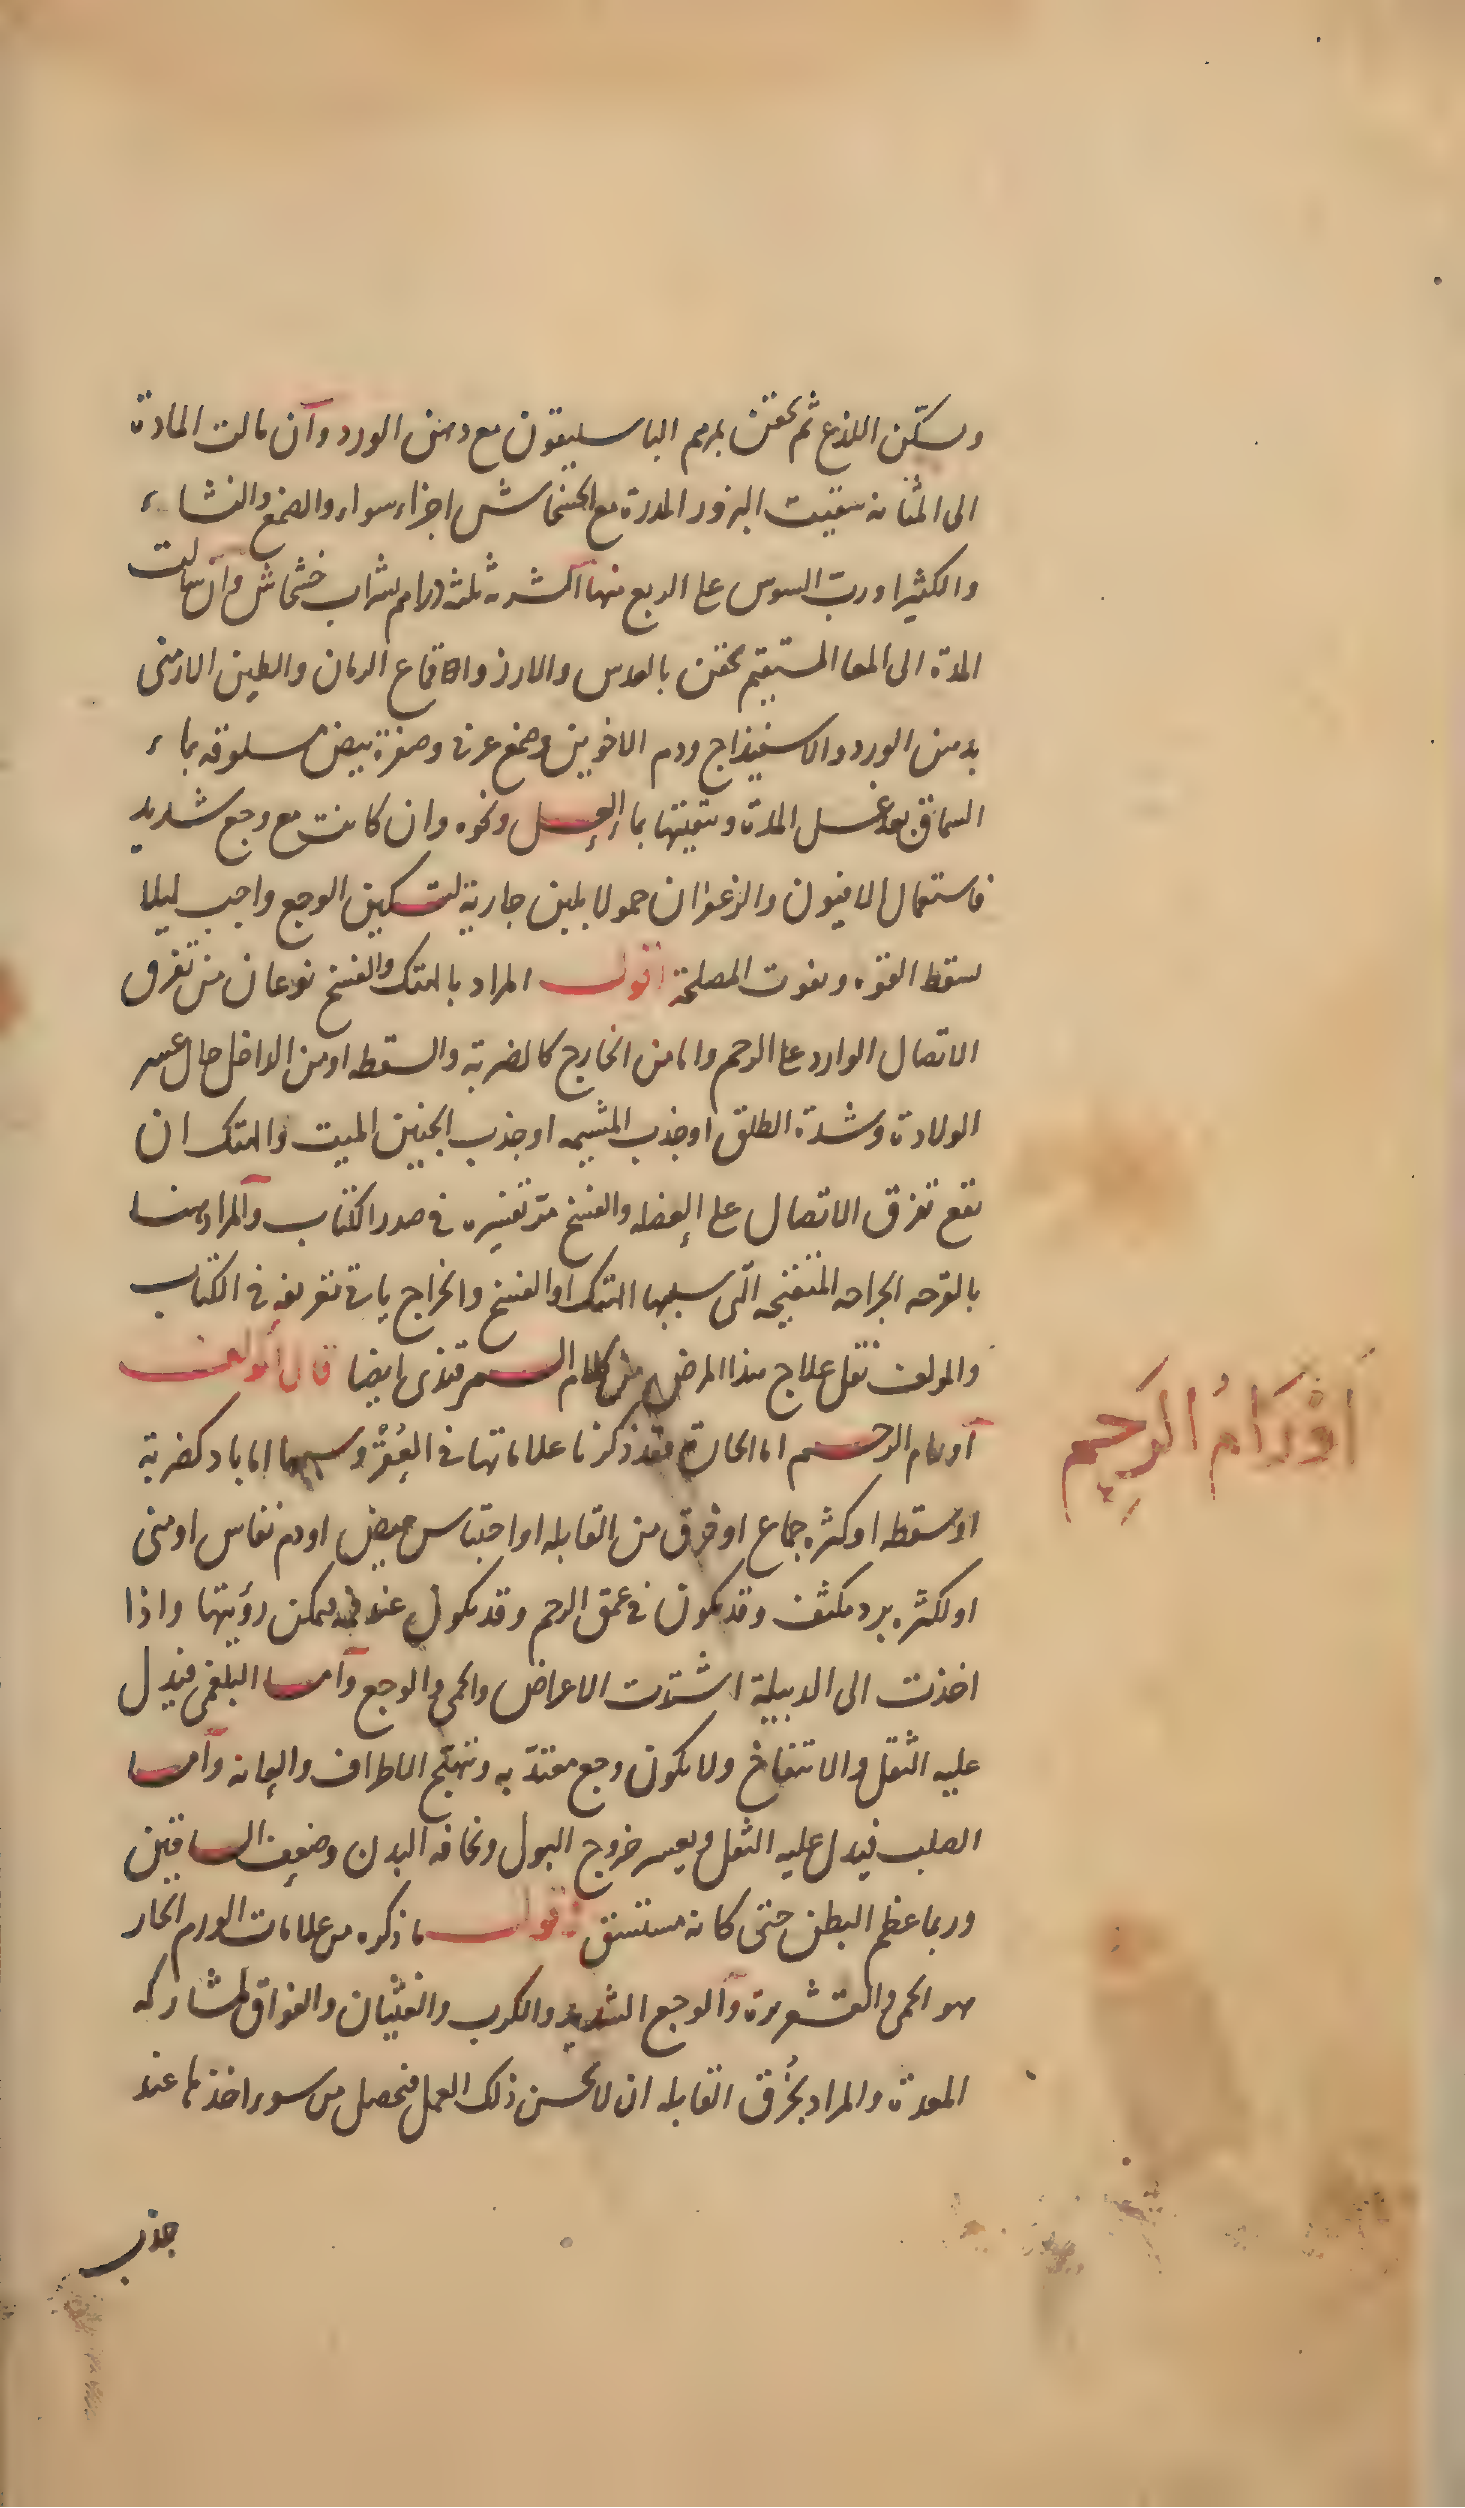 وسكّن اللذع ثم تحقن بمرهم الباسليقون مع دهن الورد وآن مالت المادة
الى المثانه سقيت البزور المدرة مع الخشخاش اجزاء سواء والصمغ والنشاء
والكثيرا ورب السوس على الربع منها الشربة ثلثة دراهم بشراب خشخاش وان سالت
المدة الى المعا المستقيم تحقن بالعدس والارز واقماع الرمان والطين الارمنى
بدهن الورد والاسفيذاج ودم الاخوين وصمغ عربى وصفرة بيض مسلوقه بماء
السماق بعد غسل المدة وتنقيتها بماء العسل ونحوه وان كانت مع وجع شديد
فاستعمال الافيون والزعفران حمولا بلبن جارية لتسكين الوجع واجب ليلا
يسقط القوة ويفوت المصلحة اقول المراد بالهتك والفسخ نوعان من تفرق
الاتصال الوارد على الرحم واما من الخارج كالضربة والسقطه او من الداخل حال عسر
الولادة وشدة الطلق او جذب المشيمه او جذب الجنين الميت والهتك ان
يقع تفرق الاتصال على العضله والفسخ مر تفسيره فى صدر الكتاب والمراد هنا
بالقرحه الجراحه المتقيحه التى سببها الهتك او الفسخ والخراج ياتى تعريفه فى الكتاب
والمولف نقل علاج هذا المرض من كلام السمرقندى ايضا قال المولف
آورام الرحم اما الحارة فقد ذكرنا علاماتها فى العقر وسببها اما باد كضربة
او سقطه او كثرة جماع او خرق من القابله او احتباس حيض او دم نفاس او منى
او لكثرة برد مكثف وقد يكون فى عمق الرحم وقد يكون عند فمه فيمكن رؤيتها واذا
اخذت الى الدبيلة اشتدت الاعراض والحمى والوجع وآما البلغمى فيدل
عليه الثقل والانتفاخ ولا يكون وجع معتدّ به وتهيّج الاطراف والعانه وآما
الصلب فيدل عليه الثقل ويعسر خروج البول ونحافه البدن وضعف الساقين
وربما عظم البطن حتى كانه مستسق اقول ما ذكره من علامات الورم الحار
هو الحمى والقشعريرة والوجع الشديد والكرب والغثيان والفواق لمشاركه
المعدة والمراد بخُرق القابله ان لا يحسن ذلك العمل فيحصل من سوء اخذها عند
جذب
اَوْرَامُ الرَحِم